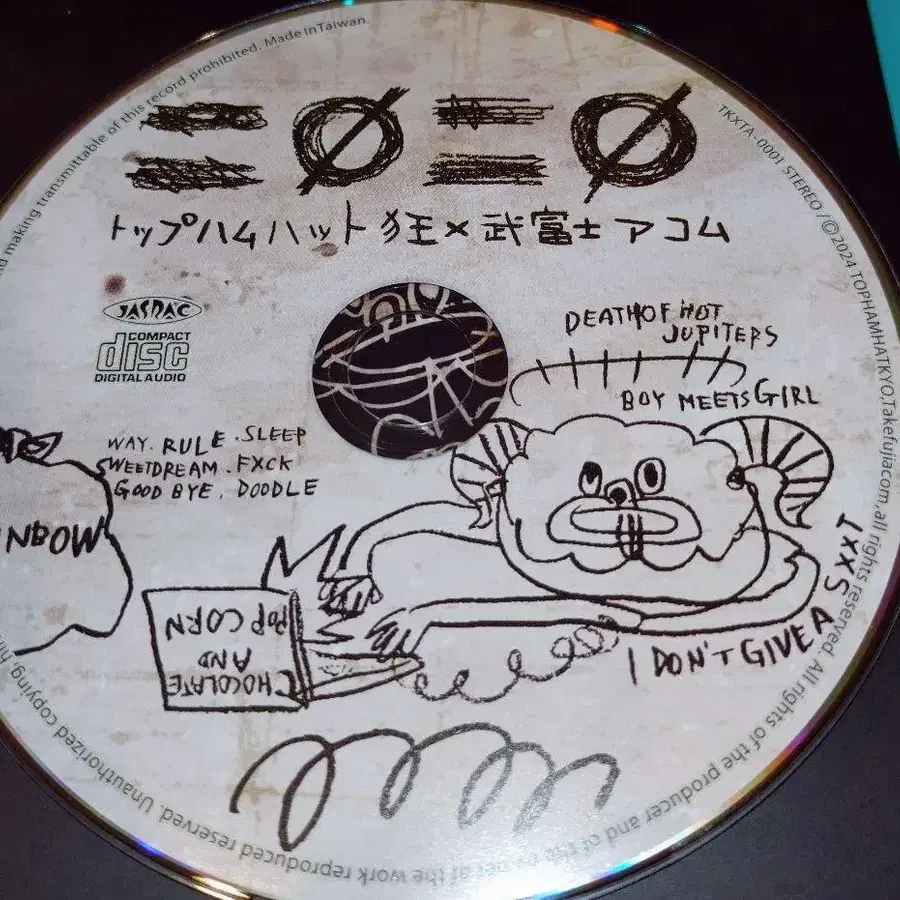 二〇二〇
トップハムハット狂×武富士アコム
JASRAC
COMPACT
disc
DIGITAL AUDIO
DEATH OF HOT
JUPITERS
BOY MEETS GIRL
WAY. RULE. SLEEP
SWEETDREAM. FXCK
GOOD BYE. DOODLE
CHOCOLATE
AND
POPCORN
I DON'T GIVE A SXXT
TKXTA-0001 STEREO /Ⓒ2024 TOPHAMHATKYO,Takefujiacom,all rights reserved. All rights of the producer and of the owner of the work reproduced reserved. Unauthorized copying,
making transmittable of this record prohibited. Made in Taiwan.